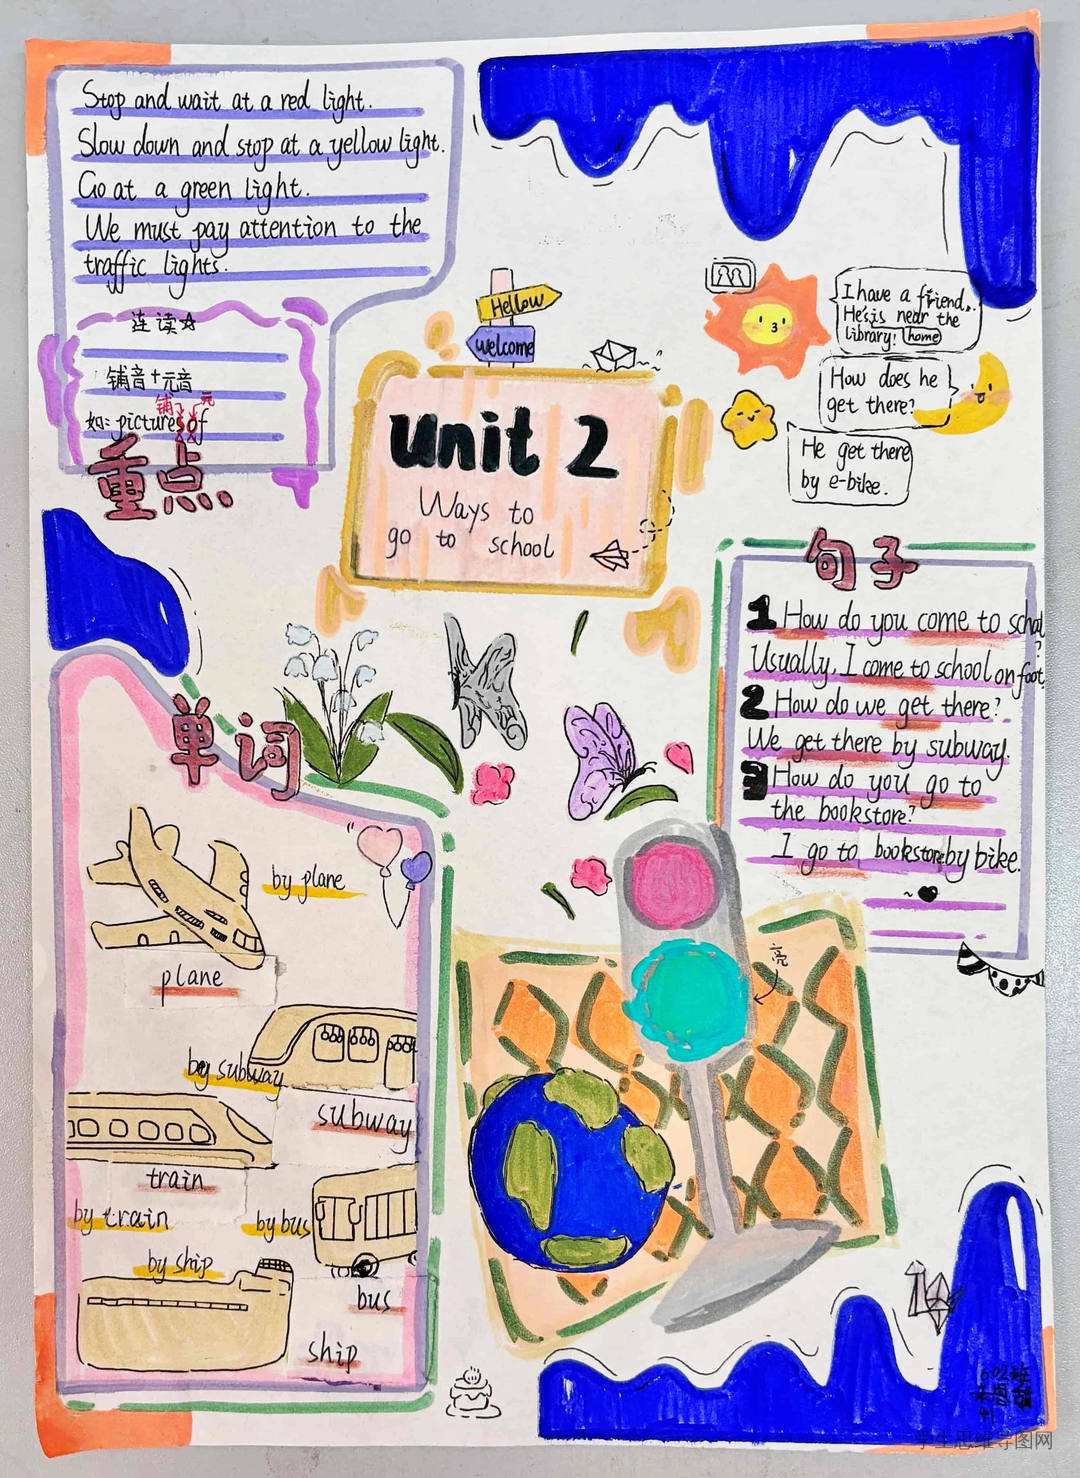 Stop and wait at a red light.
Slow down and stop at a yellow light.
Go at a green light.
We must pay attention to the
traffic lights.
连读☆
铺音+元音
铺 元
如:pictures of
重点
Hellow
welcome
unit 2
Ways to
go to school
I have a friend.
He's is near the
library! home
How does he
get there?
He get there
by e-bike.
句子
1 How do you come to school
?
Usually, I come to school on foot.
2 How do we get there?
We get there by subway.
3 How do you go to
the bookstore?
I go to bookstore by bike.
单词
by plane
plane
by subway
subway
train
by train
by bus
by ship
bus
ship
亮
602班
41
学生思维导图网